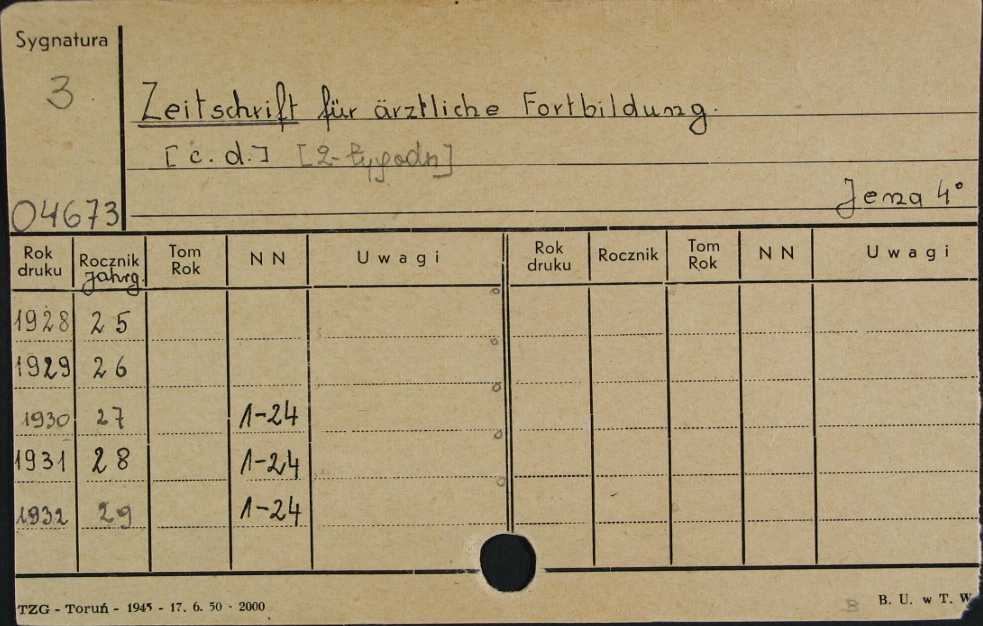 Sygnatura
3
04673
Zeitschrift für ärztliche Fortbildung.
[c. d.] [2-tygodn]
Jena 4°
Rok druku Rocznik Jahrg. Tom Rok N N Uwagi Rok druku Rocznik Tom Rok N N Uwagi
1928 25
1929 26
1930 27 1-24
1931 28 1-24
1932 29 1-24
TZG - Toruń - 1945 - 17. 6. 50 - 2000
B B. U. w T. W